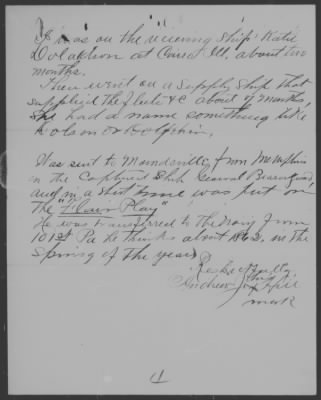 I was on the receiving Ship Katie
at Cairo Ill. about two
months.
Then went on a Supply Ship that
supplied the fleet &c about 9 months
She had a name something like
Dolson or Dolphin.
Was sent to Moundsville from Memphis
on the Captured Ship General
and in a short time was put on
the "Fawn Play"
He was transferred to the Navy from
101st Pa he thinks about 1863, in the
Spring of the year
Respectfully
Andrew
his
mark